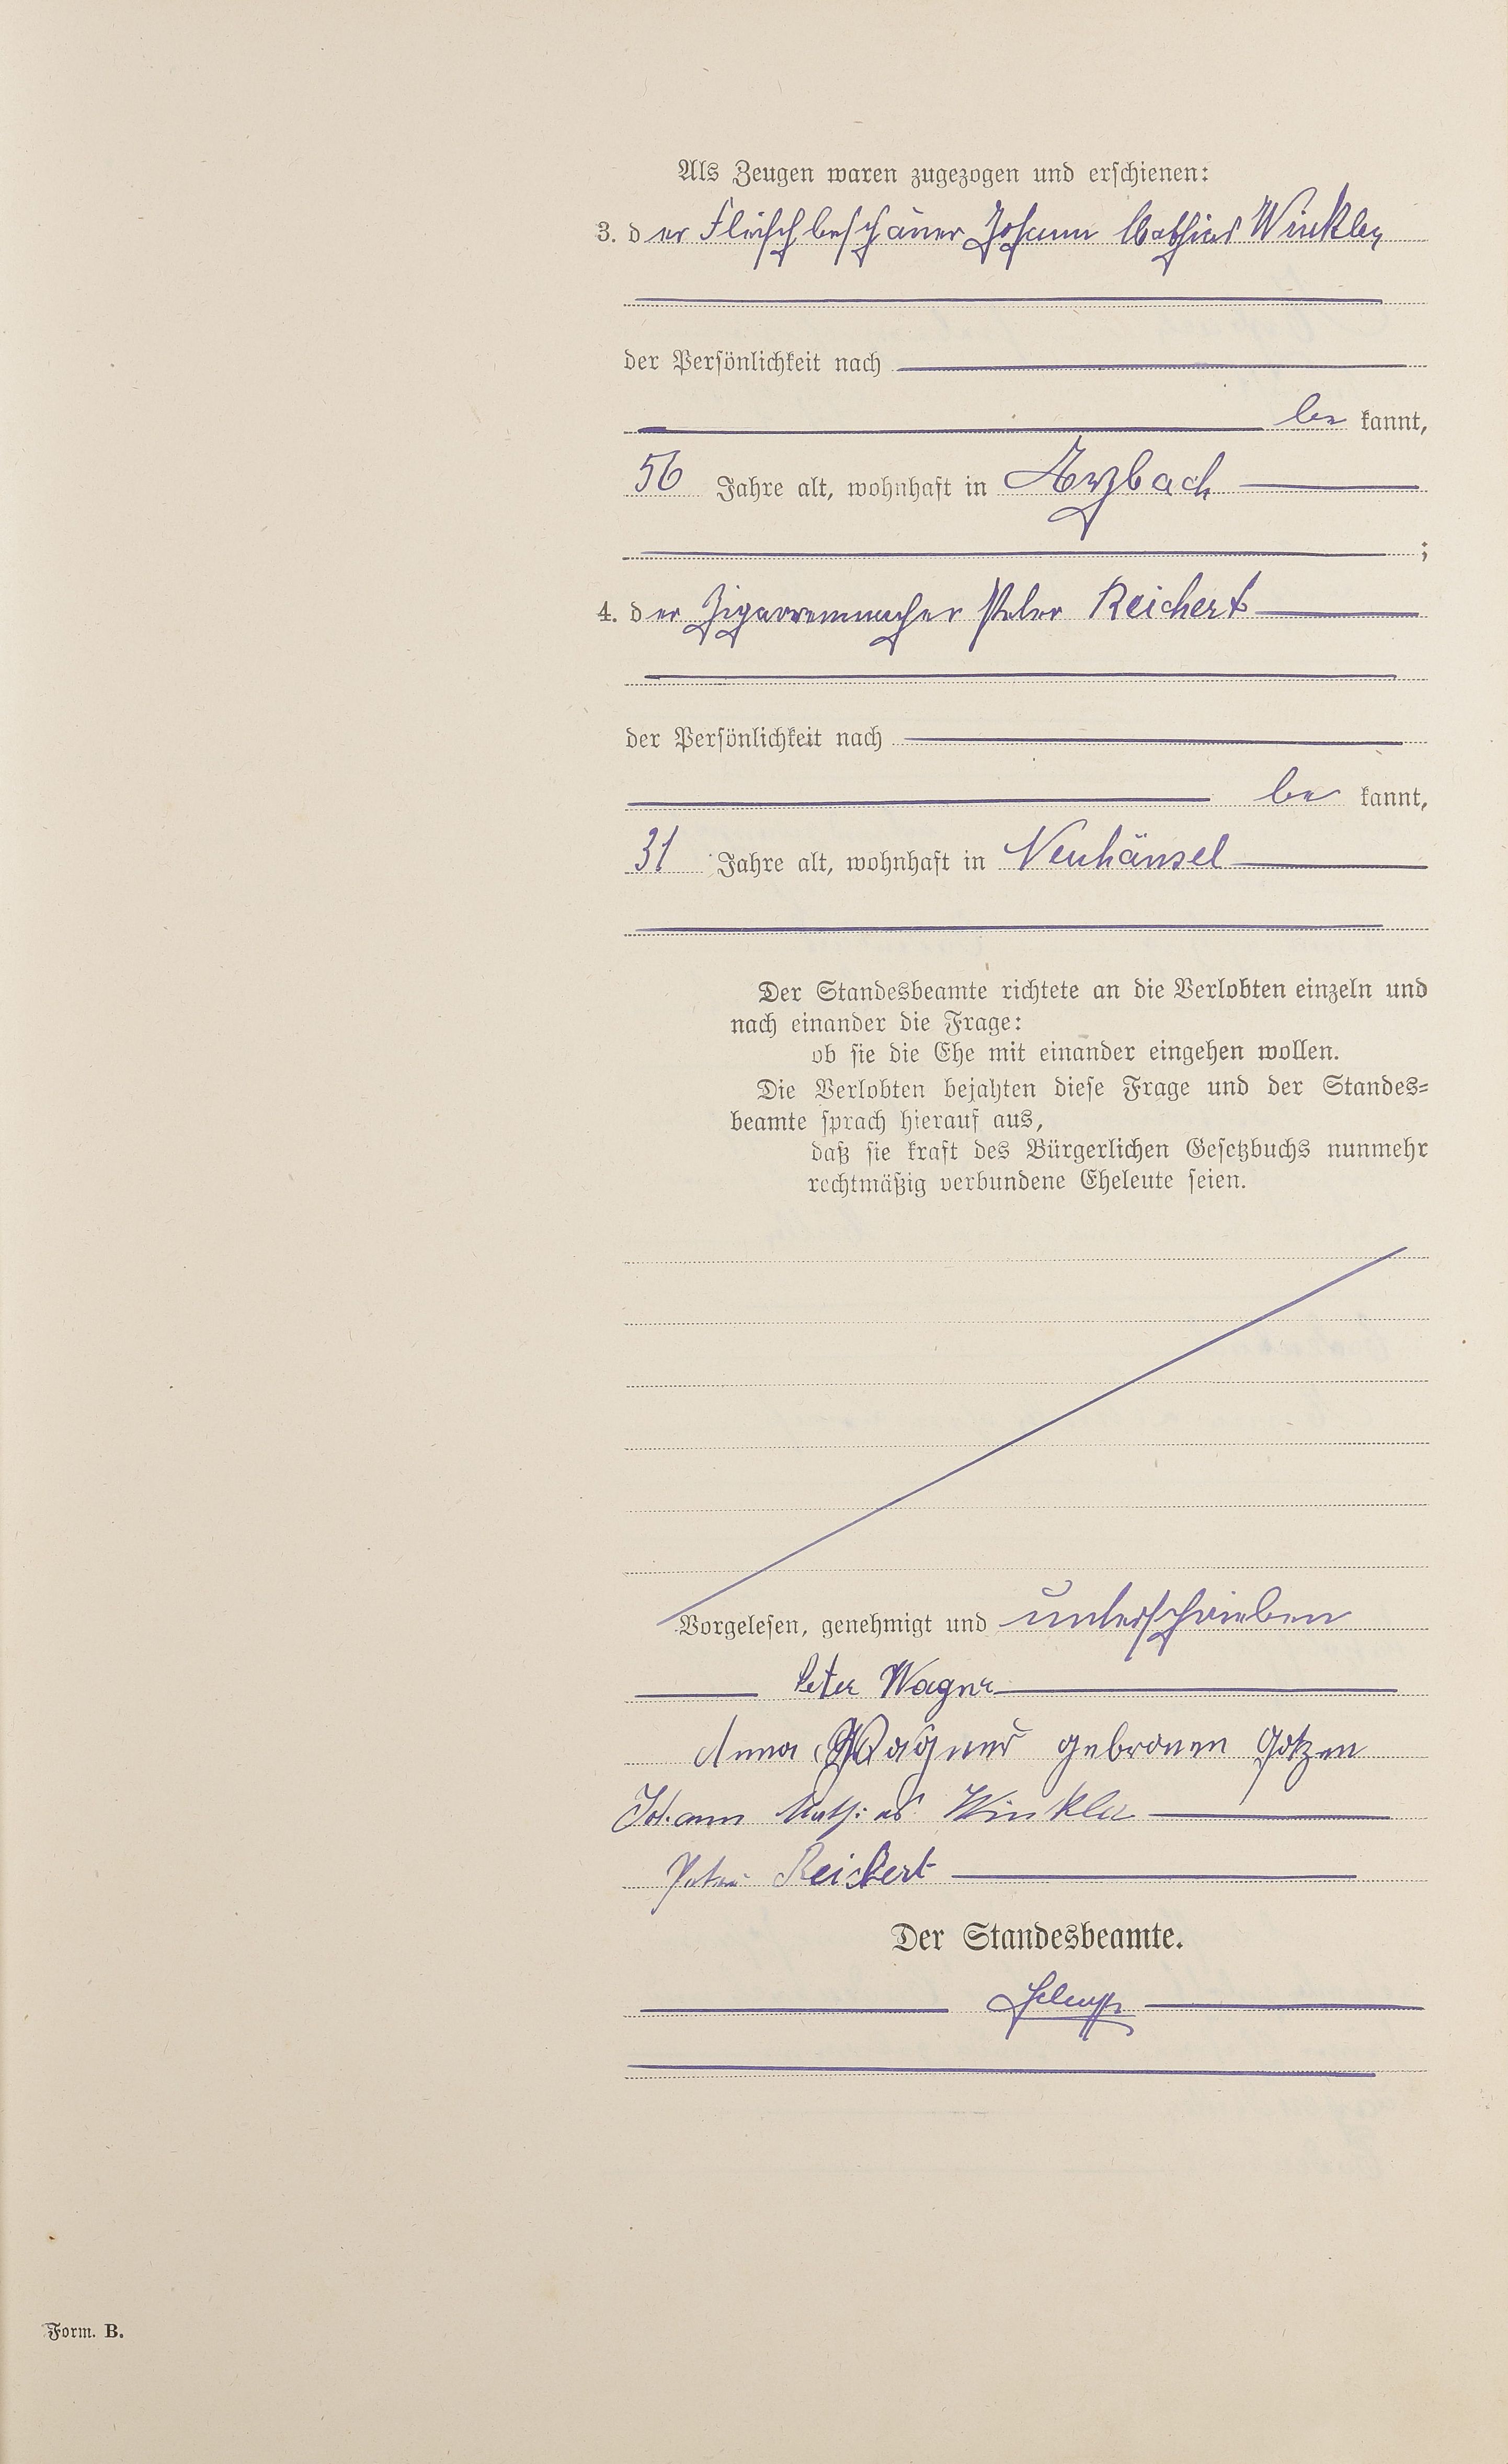 Als Zeugen waren zugezogen und erschienen:
3. der Fleischbeschauer Johann Mathias Winkler
der Persönlichkeit nach
be kannt,
56 Jahre alt, wohnhaft in Arzbach
;
4. der Zigarrenmacher Peter Reichert
der Persönlichkeit nach
be kannt,
31 Jahre alt, wohnhaft in Neuhäusel
Der Standesbeamte richtete an die Verlobten einzeln und
nach einander die Frage:
ob sie die Ehe mit einander eingehen wollen.
Die Verlobten bejahten diese Frage und der Standes-
beamte sprach hierauf aus,
daß sie kraft des Bürgerlichen Gesetzbuchs nunmehr
rechtmäßig verbundene Eheleute seien.
Vorgelesen, genehmigt und unterschrieben
Peter Wagner
Anna Wagner gebronen Götzen
Johann Mathias Winkler
Peter Reichert
Der Standesbeamte.
Form. B.